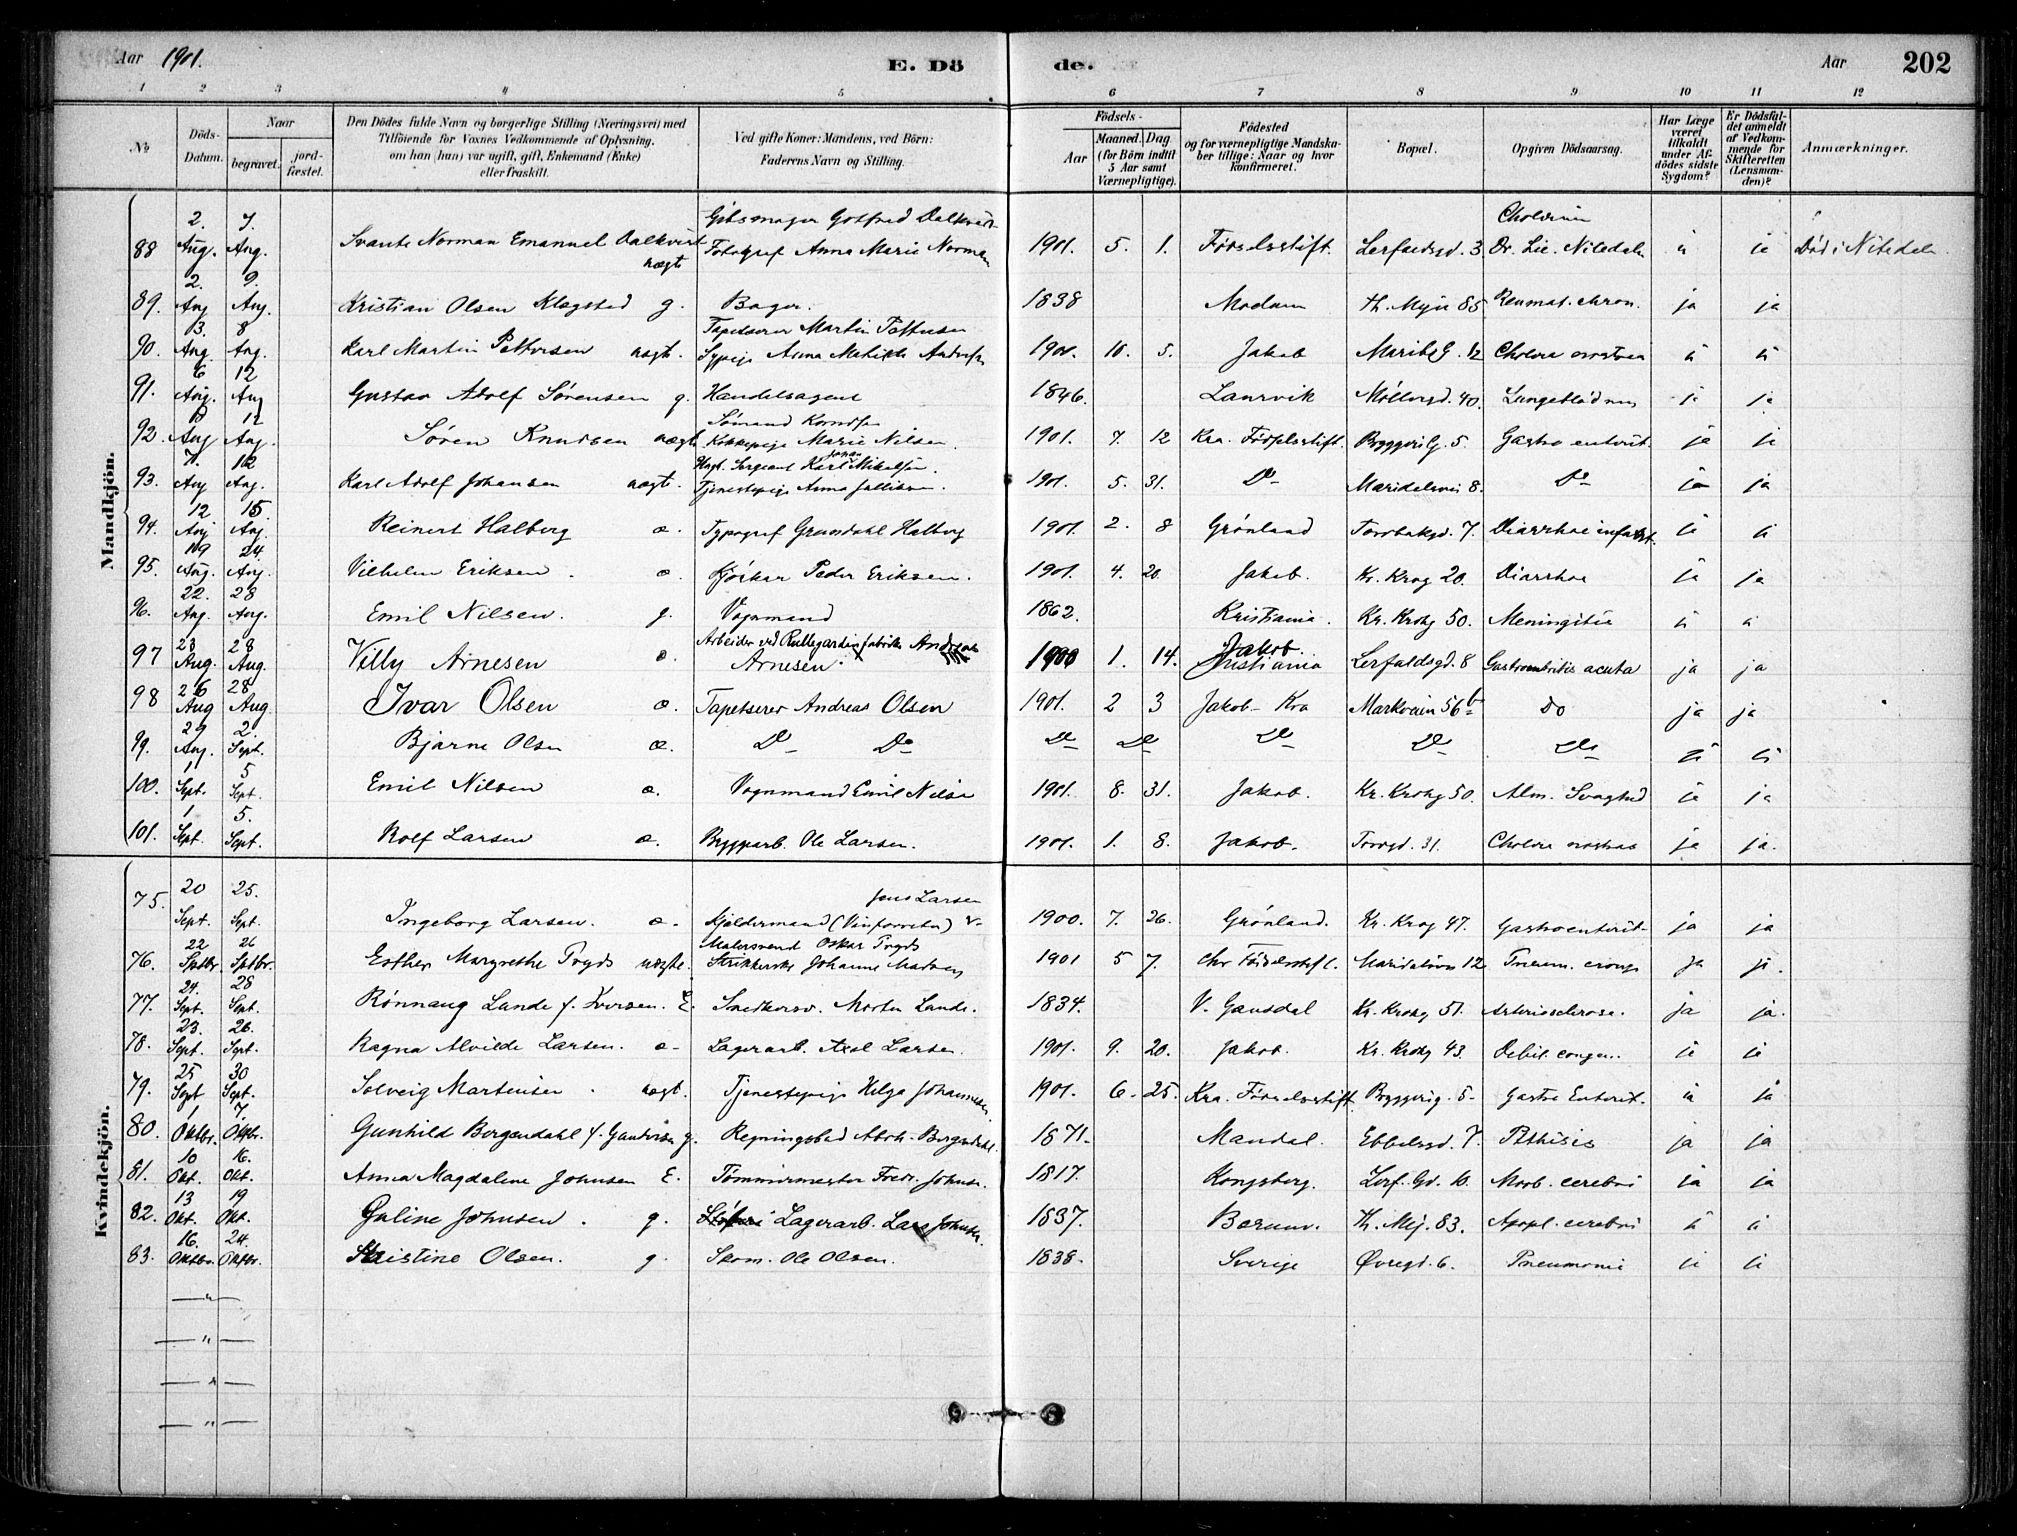 Aar 1901.
E. Dö de.
Aar
202
1 2 3 4 5 6 7 8 9 10 11 12
№
Döds-Datum.
Naar
begravet.
jord-fæstet.
Den Dödes fulde Navn og borgerlige Stilling (Næringsvei) med
Tilföiende for Voxnes Vedkommende af Oplysning,
om han (hun) var ugift, gift, Enkemand (Enke)
eller fraskilt.
Ved gifte Koner: Mandens, ved Börn:
Faderens Navn og Stilling.
Födsels-
Aar
Maaned. Dag
(for Börn indtil
5 Aar samt
Værnepligtige).
Födested
og for værnepligtige Mandska-
ber tillige: Naar og hvor
konfirmeret.
Bopæl.
Opgiven Dödsaarsag.
Har Læge
været
tilkaldt
under Af-
dödes sidste
Sygdom?
Er Dödsfal-
det anmeldt
af Vedkom-
mende for
Skifteretten
(Lensman-
den)?
Anmærkninger.
Mandkjön.
88 2. Aug. 7. Aug. Svante Norman Emanuel Dalkvist uægt. Gibsmager Gotfred Dalkvist Fotograf Anna Marie Norman 1901. 5. 1. Fødselsstift. Lerfaldsgd. 3. Dr. Lie. Nitedalen ja Död i Nitedalen
89. 2. Aug 9. Aug. Kristian Olsen Klegstad g. Bager. 1838 Modum Th. Myer 85 Reumat. chron. ja ja
90. 3. Aug. 8 Aug. Karl Martin Pettersen uægt. Tapetserer Martin Pettersen Sypige Anna Mathilde 1900. 10. 5. Jakob Maribg. 12 Cholera nostras ja ja
91. 6 Aug. 12 Aug Gustav Adolf Sørensen g. Handelsagent 1846. Laurvik Møllergd. 40. ja ja
92. 8 Aug 12 Aug. Søren Knudsen uægt. Sømand Kokkepige Marie Nilsen. 1901. 7. 12 Kra. Fødselsstift. Byggerig. 5. Gastro enterit. ja ja
93. 7. Aug 12 Aug. Karl Adolf Johansen uægt. Karl Johan Mikalsen. Tjenestepige Anna 1901. 5. 31. Do Maridalsvei 8. Do ja ja
94. 12 Aug 15 Aug. Reinert Halberg æ. Typograf Halberg 1901. 2. 8 Grønland Torvbakgd. 7. Diarrhoe infant. ja ja
95. 19 Aug. 24. Aug. Vilhelm Eriksen. æ. Kjørkar Peder Eriksen. 1901. 4. 20. Jakob. Kr. Krog 20. Diarrhoe ja ja
96. 22. Aug. 28 Aug. Emil Nilsen. g. Vognmand 1862. Kristiania. Kr. Krohg 50. Meningitis ja ja
97 23 Aug. 28 Aug. Villy Arnesen æ. Arbeider ved Rullegardinfabrik Andreas Arnesen. 1900 1. 14. Jakob Kristiania Lerfaldsgd. 8 Gastroenteritis acuta ja ja
98 26 Aug 28 Aug. Ivar Olsen æ. Tapetserer Andreas Olsen 1901. 2 3 Jakob - Kra Markveien 56b Do ja ja
99. 29 Aug. 2. Sept. Bjarne Olsen æ. Do Do Do Do Do Do Do ja ja
100. 1 Sept. 5 Sept. Emil Nilsen æ. Vognmand Emil Nilsen 1901. 8. 31. Jakob. Kr. Krohg 50. Alm. Svaghed ja ja
101. 1 Sept. 5. Sept. Rolf Larsen æ. Byggarb. Ole Larsen. 1901. 1. 8. Jakob. Torvgd. 31. Cholera nostras ja ja.
Kvindekjön.
75. 20 Sept. 25. Sept. Ingeborg Larsen. æ. Jens Larsen Kjeldermand 1900. 7. 26. Grønland. Kr. Krog 47. Gastroenterit. ja ja
76. 22 Sptbr. 26 Sptbr. Esther Margrethe Tryds uægte. Malersvend Oskar Tryds Strikkerske Johanne Madsen 1901 5 7. Chr Fødselsstift. Maridalsvei 12 Pneum. croup. ja ja.
77. 24. Sept. 28 Sept. Rønnaug Lunde f. Iversen. E. Snedkersv. Morten Lunde. 1834. V. Gausdal Kr. Krohg 51. Arteriosclerose. ja ja.
78. 23. Sept. 26. Sept. Ragna Alvilde Larsen. æ. Lagerarb. Axel Larsen. 1901. 9. 20. Jakob. Kr. Krohg 43. Debil. congen. ja ja
79. 25 Sept 30 Sept. Solveig Martinsen. uægt. Tjenestepige Helga Johannesen 1901. 6. 25. Kra. Fødselsstift. Byggerig. 5. Gastro Enterit. ja ja
80. 1 Oktbr. 7. Oktbr. Gunhild Bergendahl f. g. Abrh. Bergendahl. 1871. Mandal. Ebbelsgd. 7. Pthisis ja ja
81. 10 Okt. 16. Okt. Anna Magdalene Johnsen E. Tømmermester Fredr. Johnsen. 1817. Kongsberg. Lerf. Gd. 10. Morb. cerebri ja ja
82. 13 Okt. 19 Okt. Guline Johnsen. g. Lagerarb. Lars Johnsen. 1837. Bærum. Th. Mej. 83. Apopl. cerebri ja ja
83. 16. Oktbr. 24. Oktbr. Kristine Olsen. g. Skom. Ole Olsen. 1838. Sverige Øvregd. 6. Pneumonie ja ja
— " —
— " —
— " —
— " —